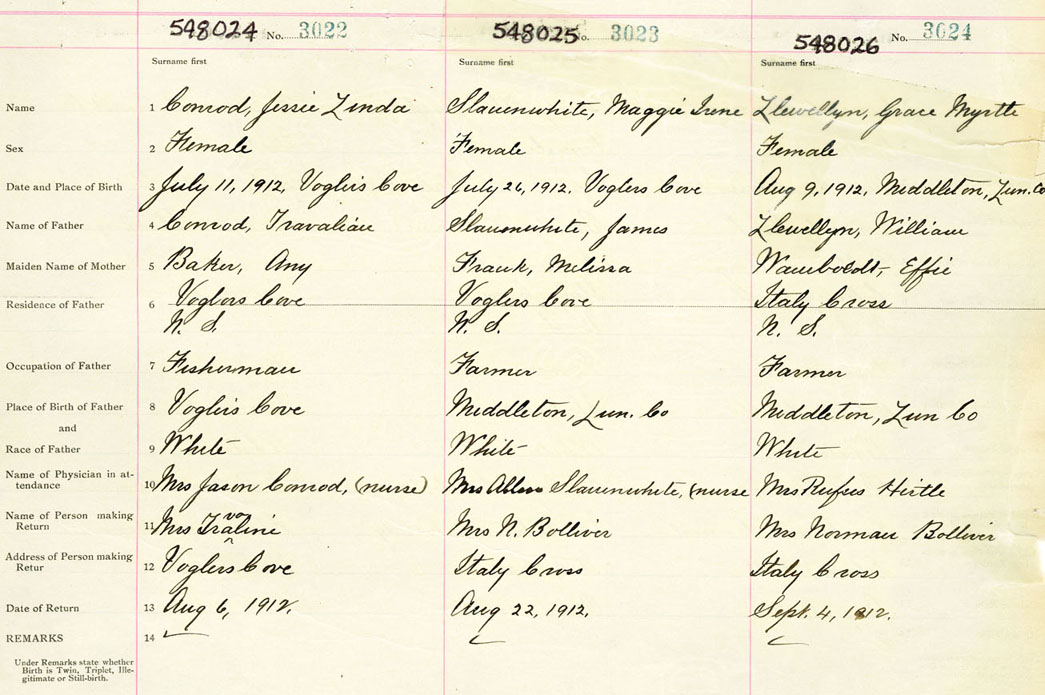 548024 No. 3022 548025 No. 3023 548026 No. 3024
Surname first Surname first Surname first
Name 1 Conrod, Jessie Linda Slauenwhite, Maggie Irene Llewellyn, Grace Myrtle
Sex 2 Female Female Female
Date and Place of Birth 3 July 11, 1912, Voglers Cove July 26, 1912, Voglers Cove Aug 9, 1912, Middleton, Lun. Co
Name of Father 4 Conrod, Slauenwhite, James Llewellyn, William
Maiden Name of Mother 5 Baker, Amy Frank, Melissa Wamboldt, Effie
Residence of Father 6 Voglers Cove Voglers Cove Italy Cross
N. S. N. S. N. S.
Occupation of Father 7 Fisherman Farmer Farmer
Place of Birth of Father 8 Voglers Cove Middleton, Lun. Co Middleton, Lun Co
and
Race of Father 9 White White White
Name of Physician in at-
tendance 10 Mrs Jason Conrod, (nurse) Mrs Slauenwhite, (nurse Mrs Rufus Hirtle
Name of Person making
Return 11 Mrs Mrs N. Bolliver Mrs Norman Bolliver
Address of Person making
Retur 12 Voglers Cove Italy Cross Italy Cross
Date of Return 13 Aug 6, 1912. Aug 22, 1912. Sept. 4, 1912.
REMARKS 14
Under Remarks state whether
Birth is Twin, Triplet, Ille-
gitimate or Still-birth.